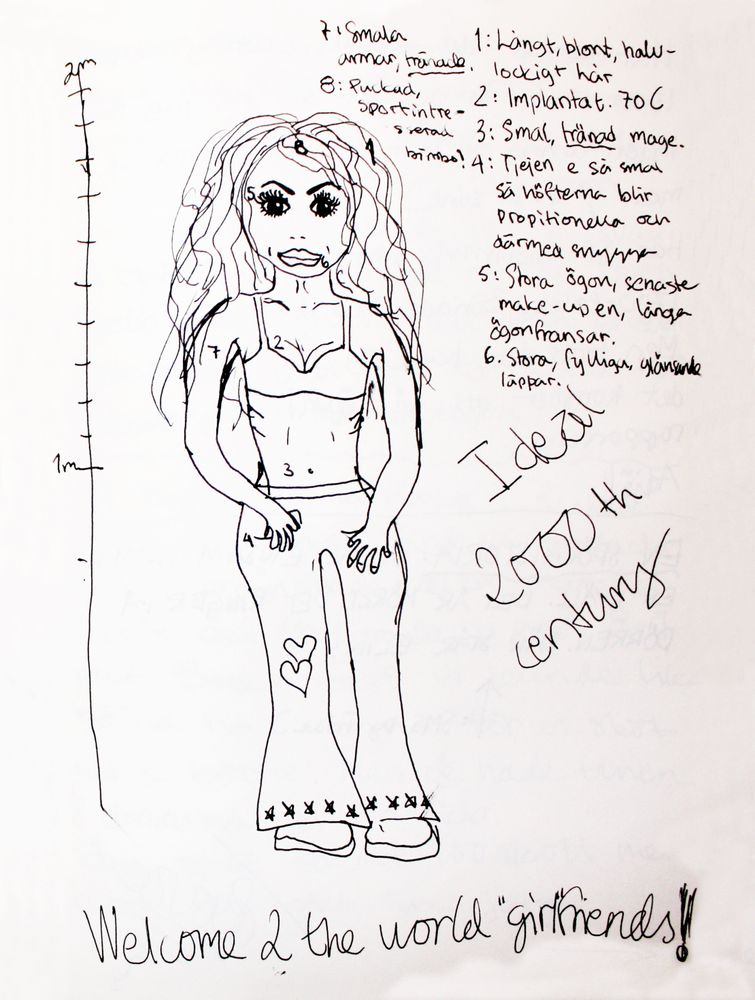 7: Smala
armar, tränade.
8: Puckad,
sportintre-
sserad
bimbo!
1: Långt, blont, halv-
lockigt hår
2: Implantat. 70 C
3: Smal, tränad mage.
4: Tjejen e så smal
så höfterna blir
propitionella och
därmed snygga
5: Stora ögon, senaste
make-upen, långa
ögonfransar.
6. Stora, fylliga, glänsande
läppar.
2m
8
1
5
6
7
2
1m
3
4
Ideal
2000th
century
Welcome 2 the world "girlfriends"!